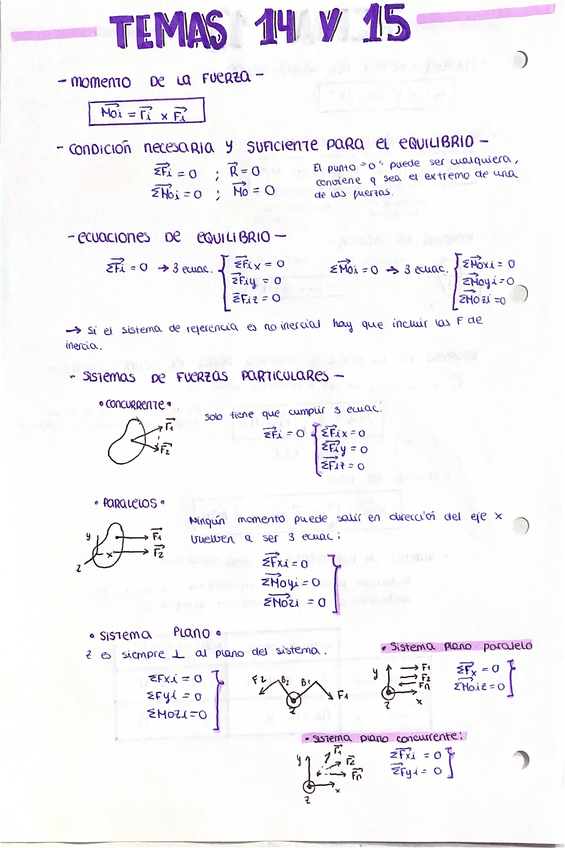 TEMAS 14 Y 15
- MOMENTO DE LA FUERZA -
Moi = ri x Fi
- CONDICIÓN NECESARIA Y SUFICIENTE PARA EL EQUILIBRIO -
ΣFi = 0 ; R = 0
ΣMoi = 0 ; Mo = 0
El punto "o" puede ser cualquiera,
conviene q sea el extremo de una
de las fuerzas.
- ECUACIONES DE EQUILIBRIO -
ΣFi = 0 → 3 ecuac.
ΣFix = 0
ΣFiy = 0
ΣFiz = 0
ΣMoi = 0 → 3 ecuac.
ΣMoxi = 0
ΣMoyi = 0
ΣMozi = 0
→ Si el sistema de referencia es no inercial hay que incluir las F de
inercia.
- SISTEMAS DE FUERZAS PARTICULARES -
• CONCURRENTE •
solo tiene que cumplir 3 ecuac.
ΣFi = 0
ΣFix = 0
ΣFiy = 0
ΣFiz = 0
F1
F2
• PARALELOS •
Ningún momento puede salir en dirección del eje x
vuelven a ser 3 ecuac:
ΣFxi = 0
ΣMoyi = 0
ΣMozi = 0
y
x
z
F1
F2
• SISTEMA PLANO •
z es siempre ⊥ al plano del sistema.
ΣFxi = 0
ΣFyi = 0
ΣMozi = 0
F2
B2
B1
F1
z
• Sistema plano paralelo
y
F1
F2
Fn
x
z
ΣFx = 0
ΣMoiz = 0
• Sistema plano concurrente:
y
F1
F2
Fn
x
z
ΣFxi = 0
ΣFyi = 0